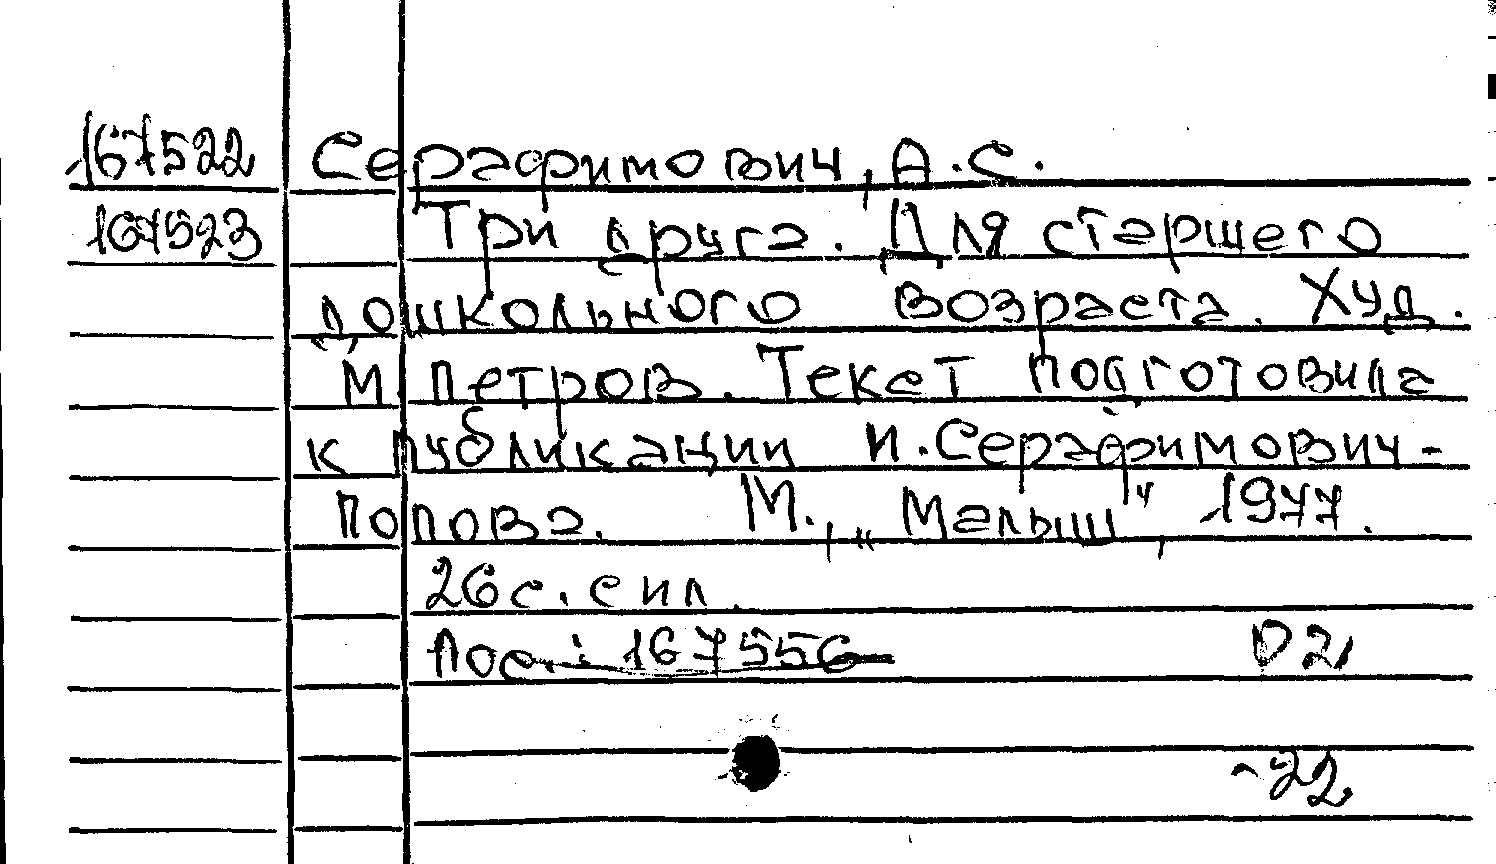 167522 Серафимович, А.С.
167523 Три друга. Для старшего
дошкольного возраста. Худ.
М. Петров. Текст подготовила
к публикации И. Серафимович-
Попова. М., „Малыш“, 1977.
26 с. с ил.
Пос.: 167556 D2
-22